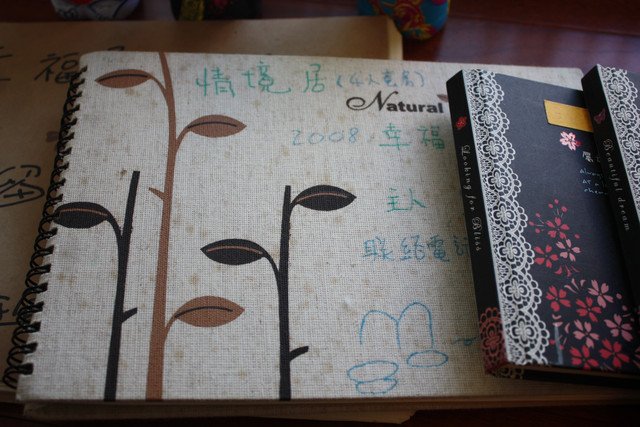 情境居(4人套房)
Natural
2008.幸福
主人
聯絡電話
Looking for Bliss
Beautiful dream
幸福居
留